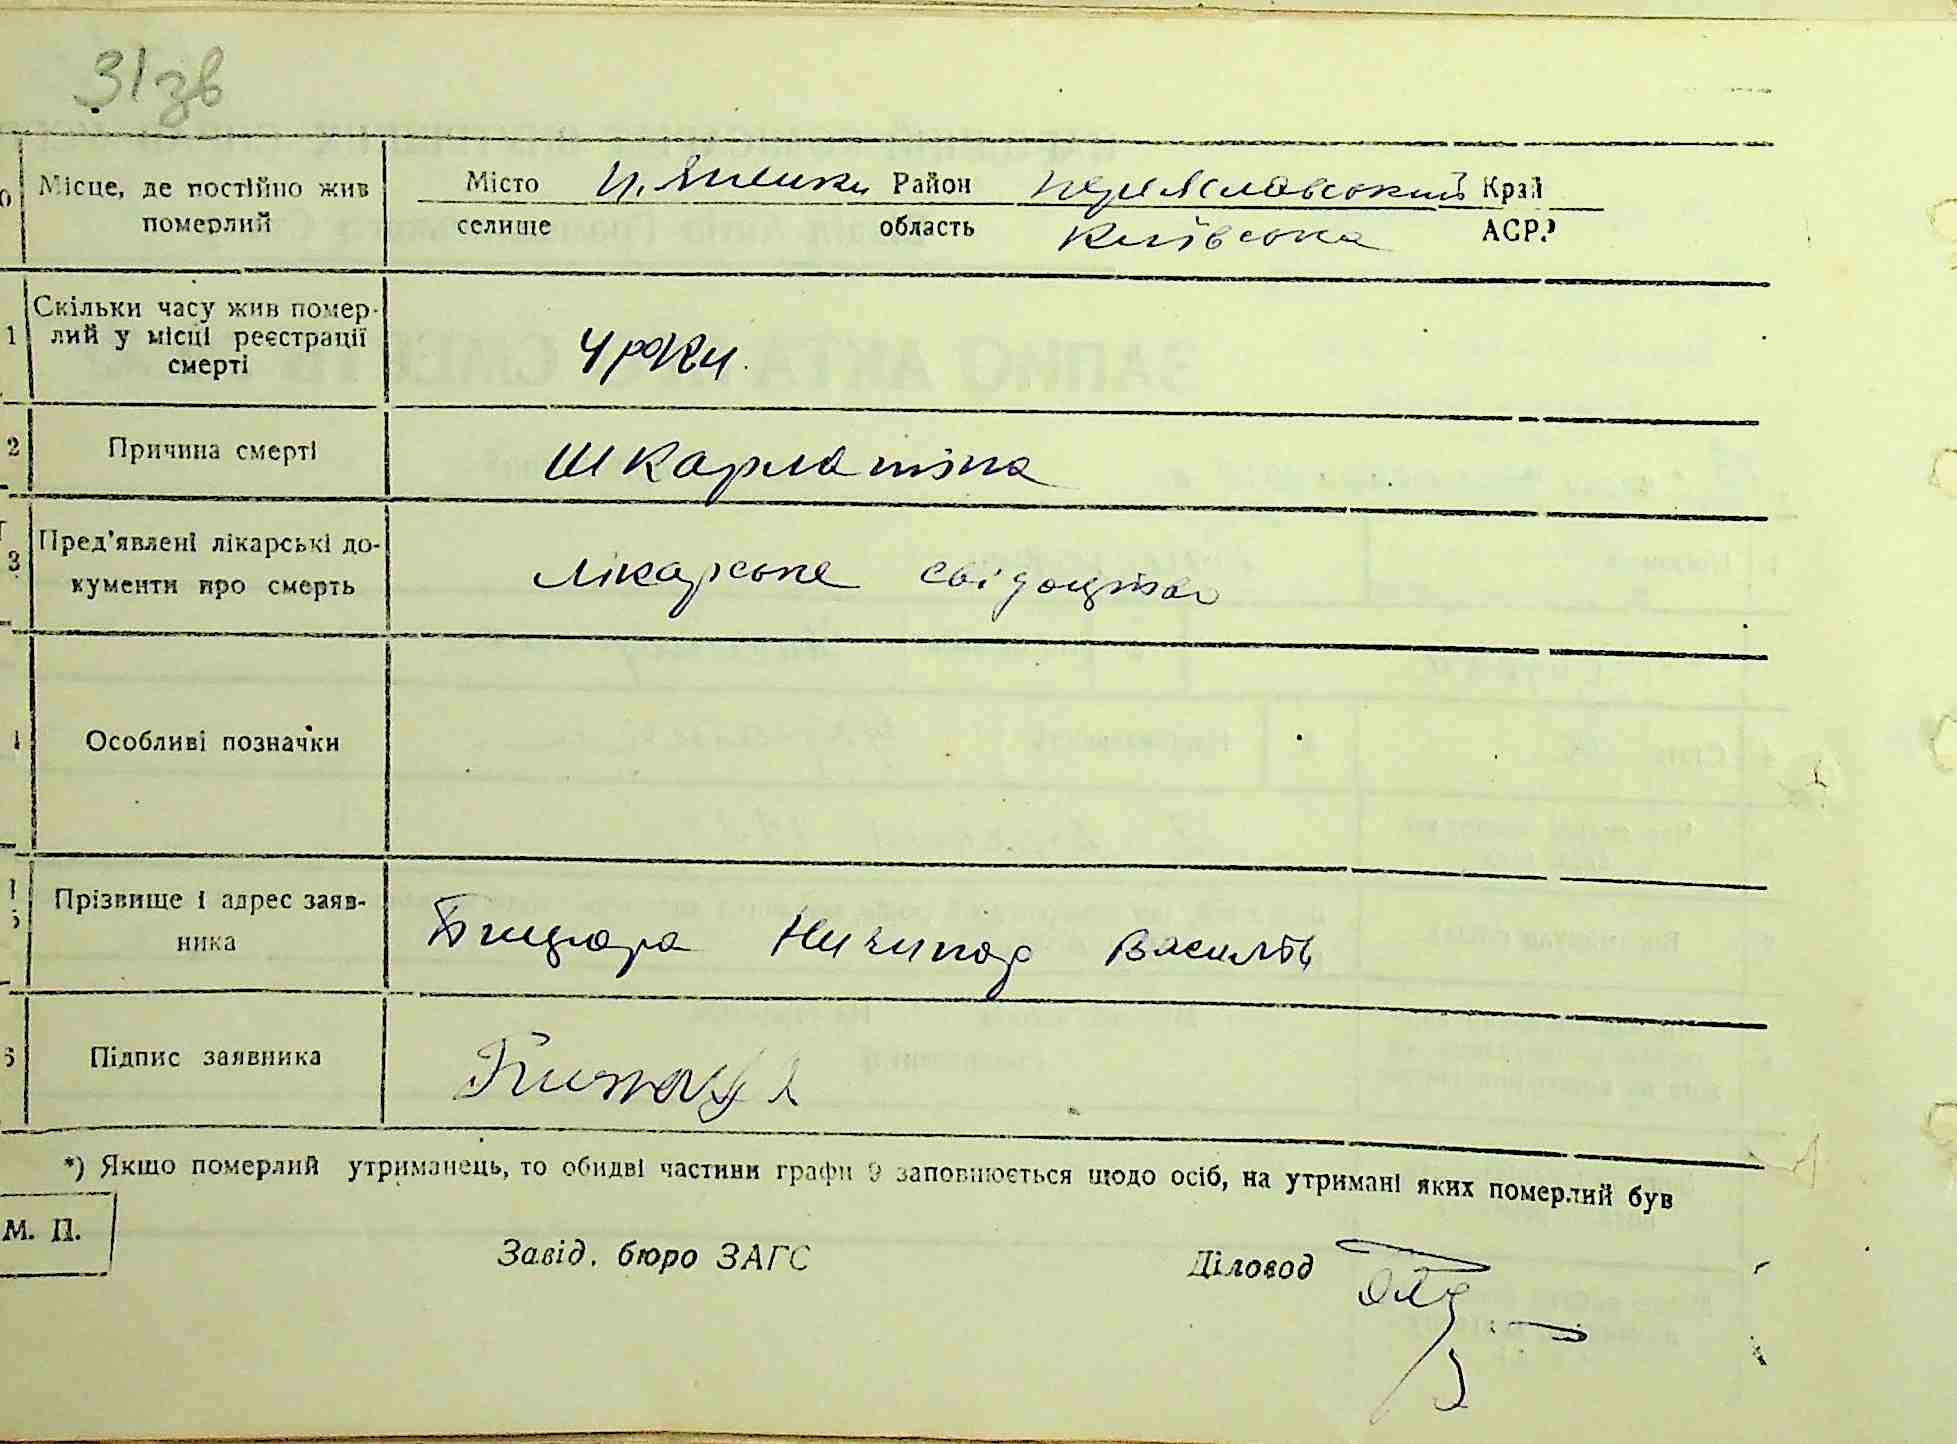 31зв
Місце, де постійно жив
померлий
Місто с. Яшники Район Переяславський Край
селище область Київська АСРР
1 Скільки часу жив помер-
лий у місці реєстрації
смерті
4 роки.
2 Причина смерті Шкарлатіна
3 Пред'явлені лікарські до-
кументи про смерть
лікарське свідоцтво
Особливі позначки
Прізвище і адрес заяв-
ника
Ничипор Василів
6 Підпис заявника
*) Якщо померлий утриманець, то обидві частини графи 9 заповнюється щодо осіб, на утримані яких померлий був
М. П.
Завід. бюро ЗАГС Діловод